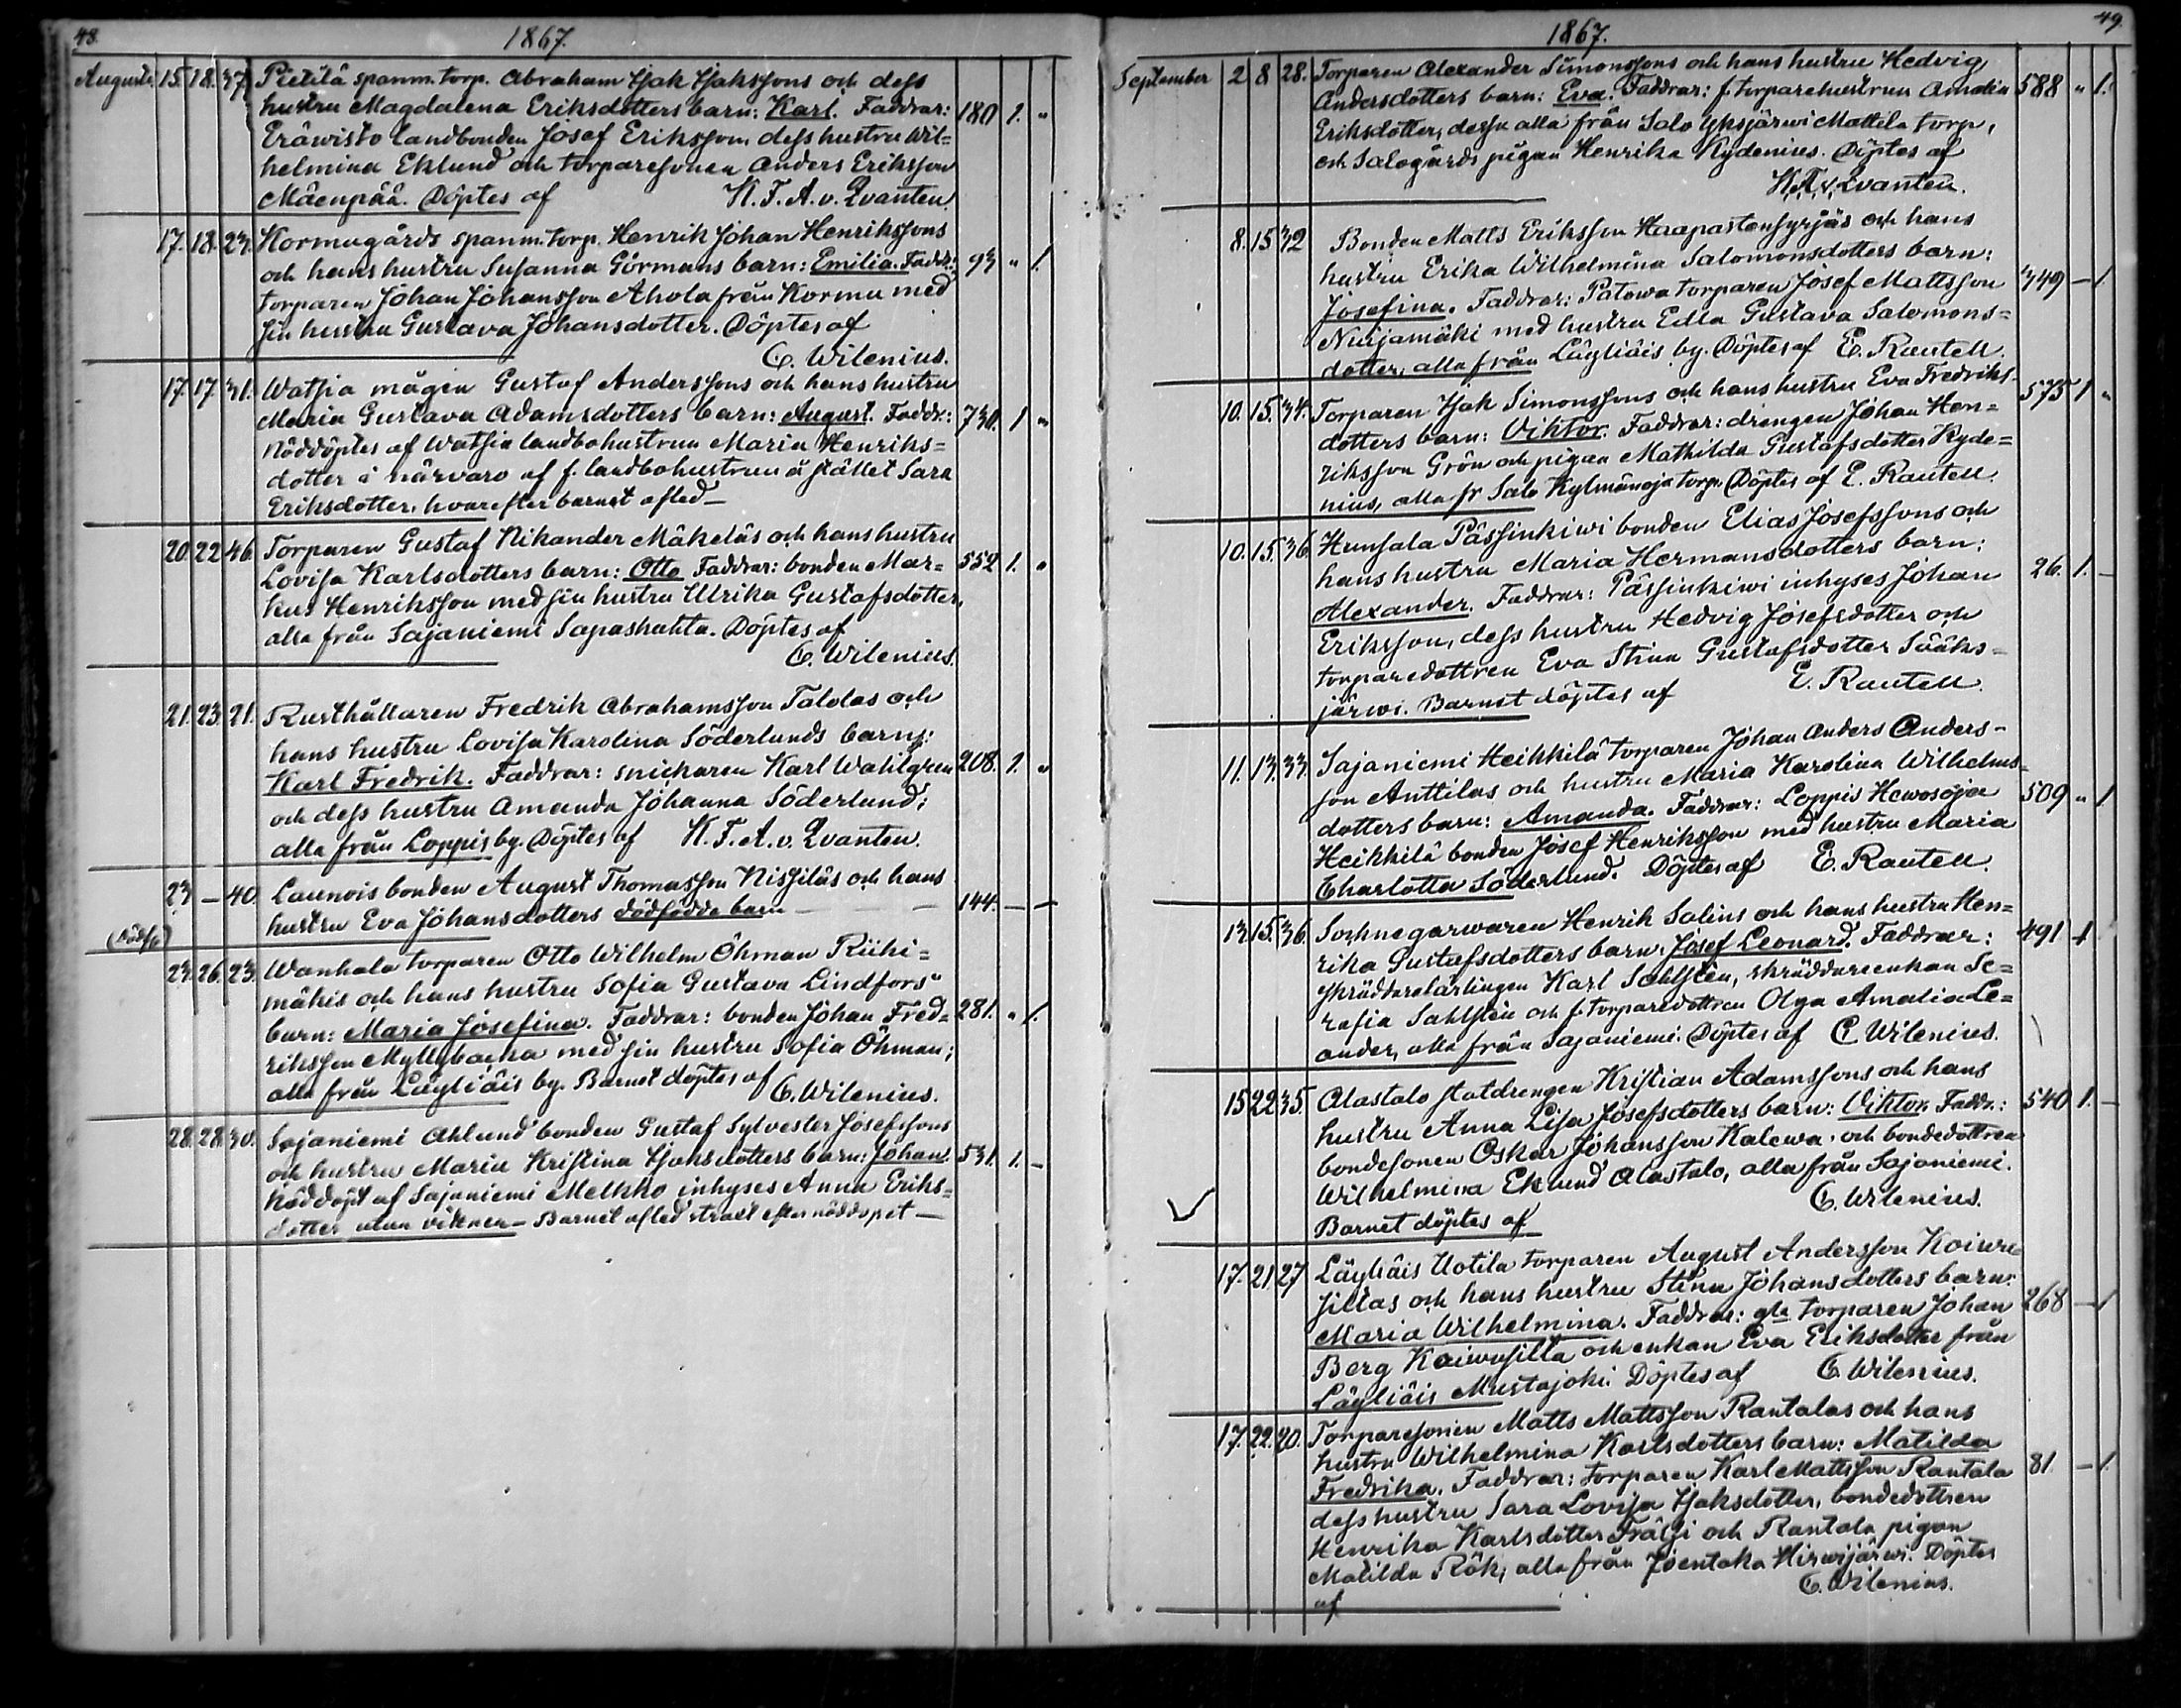 48.
1867.
Augusti. 15. 18. 37. Pietilä spanm. torp. Abraham Isak Isakssons och dess
hustru Magdalena Eriksdotters barn: Karl. Faddrar: 180 1. "
Eräwisto landbonden Josef Eriksson, dess hustru Wil=
helmina Eklund och torparesonen Anders Eriksson
Mäenpää. Döptes af K. F. A. v. Qvanten.
17. 18. 23. Kormugårds spanm. torp. Henrik Johan Henrikssons
och hans hustru Susanna Görmans barn: Emilia. Faddr.: 93 " 1.
torparen Johan Johansson Ahola från Kormu med
sin hustru Gustava Johansdotter. Döptes af
C. Wilenius.
17. 17. 31. Watsia mågen Gustaf Anderssons och hans hustru
Maria Gustava Adamsdotters barn: August. Faddr.: 730. 1 "
Nöddöptes af Watsia landbohustrun Maria Henriks=
dotter i närvaro af f. landbohustrun å stället Sara
Eriksdotter, hvarefter barnet afled—
20. 22 46. Torparen Gustaf Nikander Mäkeläs och hans hustru
Lovisa Karlsdotters barn: Otto Faddrar: bonden Mar= 552 1. "
kus Henriksson med sin hustru Ulrika Gustafsdotter,
alla från Sajaniemi Sapashuhta. Döptes af
C. Wilenius.
21. 23. 21. Rusthållaren Fredrik Abrahamsson Talolas och
hans hustru Lovisa Karolina Söderlunds barn:
Karl Fredrik. Faddrar: snickaren Karl Wahlgren 208. 1. "
och dess hustru Amanda Johanna Söderlund;
alla från Loppis by. Döptes af K. F. A. v. Qvanten.
23 — 40. Launois bonden August Thomasson Nissiläs och hans
hustru Eva Johansdotters dödfödda barn — 144. — —
23. 26. 23. Wanhala torparen Otto Wilhelm Öhman Riihi=
mäkis och hans hustru Sofia Gustava Lindfors
barn: Maria Josefina. Faddrar: bonden Johan Fred= 281. " 1.
riksson Myllybacka med sin hustru Sofia Öhman;
alla från Läyliäis by. Barnet döptes af C. Wilenius.
28. 28. 30. Sajaniemi Ahlund bonden Gustaf Sylvester Josefssons
och hustru Maria Kristina Isaksdotters barn: Johan. 531. 1. —
Nöddöpt af Sajaniemi Melkko inhyses Anna Eriks=
dotter utan vittnen— Barnet afled straxt efter nöddopet —
49.
1867.
September 2 8 28. Torparen Alexander Simonssons och hans hustru Hedvig
Andersdotters barn: Eva. Faddrar: f. torparehustrun Amalia 588 " 1.
Eriksdotter, dessa alla från Salo Yksjärwi Mattila torp,
och Salogårds pigan Henrika Rydenius. Döptes af
K. F. A. v. Qvanten.
8. 15 32 Bonden Matts Eriksson Haapastensyrjäs och hans
hustru Erika Wilhelmina Salomonsdotters barn:
Josefina. Faddrar: Patowa torparen Josef Mattsson 349 — 1.
Nuijamäki med hustru Edla Gustava Salomons=
dotter, alla från Läyliäis by. Döptes af E. Rautell.
10. 15. 34. Torparen Isak Simonssons och hans hustru Eva Fredriks- 575 1 "
dotters barn: Viktor. Faddrar: drängen Johan Hen=
riksson Grön och pigan Mathilda Gustafsdotter Ryde=
nius, alla fr Salo Kylmänoja torp. Döptes af E. Rautell.
10. 15. 36. Hunsala Pässinkiwi bonden Elias Josefssons och
hans hustru Maria Hermansdotters barn:
Alexander. Faddrar: Pässinkiwi inhyses Johan 26. 1. —
Eriksson, dess hustru Hedvig Josefsdotter och
torparedottren Eva Stina Gustafsdotter Sääks=
järwi. Barnet döptes af E. Rautell.
11. 13. 33. Sajaniemi Heikkilä torparen Johan Anders Anders-
son Anttilas och hustru Maria Karolina Wilhelms=
dotters barn: Amanda. Faddrar: Loppis Hewosoja 509 " 1
Heikkilä bonden Josef Henriksson med hustru Maria
Charlotta Söderlund. Döptes af E. Rautell.
13. 15. 36. Socknegarwaren Henrik Salins och hans hustru Hen=
rika Gustafsdotters barn: Josef Leonard. Faddrar: 491 1
skräddarelärlingen Karl Sahlstén, skräddareenkan Se=
rafia Sahlstén och f. torparedottren Olga Amalia Le=
ander, alla från Sajaniemi. Döptes af C. Wilenius.
15 22 35. Alastalo statdrengen Kristian Adamssons och hans
hustru Anna Lisa Josefsdotters barn: Viktor. Faddr.: 540 1. —
bondesonen Oskar Johansson Kalewa och bondedottren
Wilhelmina Eklund Alastalo, alla från Sajaniemi.
Barnet döptes af C. Wilenius.
17. 21 27 Läyliäis Uotila torparen August Andersson Koiwu=
siltas och hans hustru Stina Johansdotters barn:
Maria Wilhelmina. Faddrar: gla torparen Johan 268 — 1
Berg Kaiwusilta och enkan Eva Eriksdotter från
Läyliäis Mustajoki. Döptes af C. Wilenius.
17. 22. 20. Torparesonen Matts Mattsson Rantalas och hans
hustru Wilhelmina Karlsdotters barn: Matilda
Fredrika. Faddrar: torparen Karl Mattsson Rantala 81 — 1.
dess hustru Sara Lovisa Isaksdotter, bondedottren
Henrika Karlsdotter Frässi och Rantala pigan
Matilda Rök, alla från Joentaka Hirwijärwi. Döptes
af C. Wilenius.